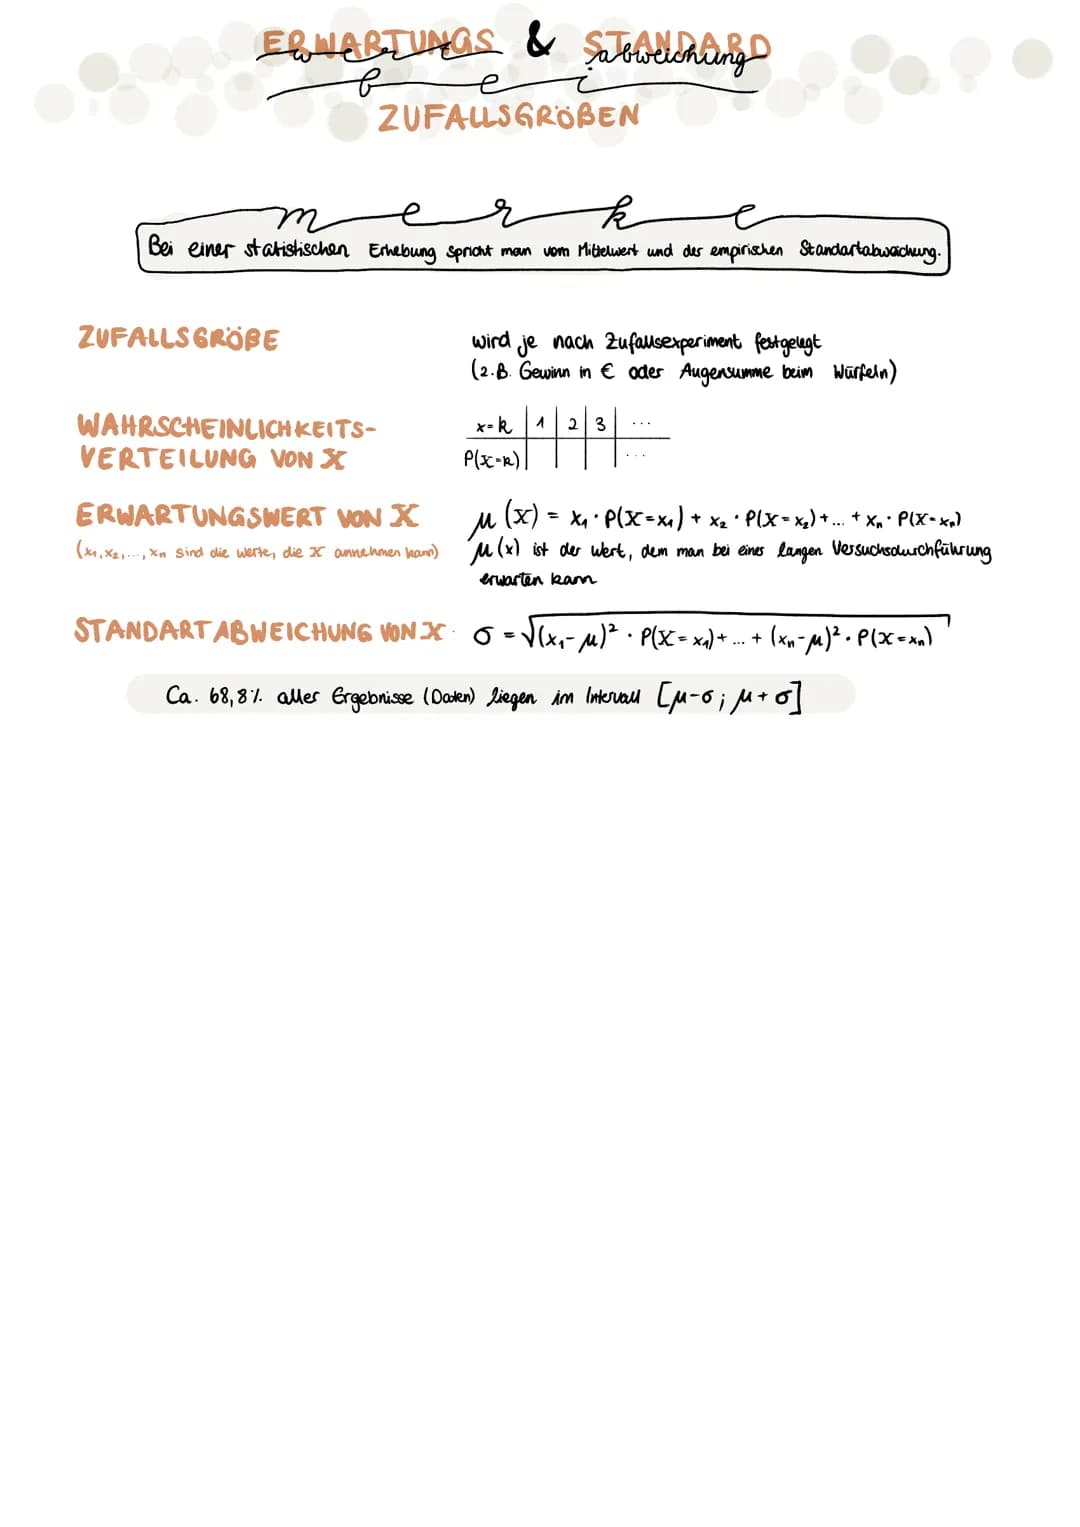 ERWARTUNGS & STANDARD
abweichung
bei
ZUFALLSGRÖßEN
merke
Bei einer statistischen Erhebung spricht man vom Mittelwert und der empirischen Standartabweichung.
ZUFALLSGRÖßE
wird je nach Zufallsexperiment festgelegt
(z.B. Gewinn in € oder Augensumme beim Würfeln)
WAHRSCHEINLICHKEITS-
VERTEILUNG VON X
x=k 1 2 3 ...
P(X=k) ...
ERWARTUNGSWERT VON X
(x₁,x₂,..., xn sind die Werte, die X annehmen kann)
μ(X) = x₁ · P(X=x₁) + x₂ · P(X=x₂)+... + xn · P(X=xn)
μ(x) ist der Wert, dem man bei eines langen Versuchsdurchführung
erwarten kann
STANDARTABWEICHUNG VON X
σ = √(x₁-μ)² · P(X=x₁)+ ... + (xn-μ)² · P(X=xn)
Ca. 68,8% aller Ergebnisse (Daten) liegen im Intervall [μ-σ; μ+σ]